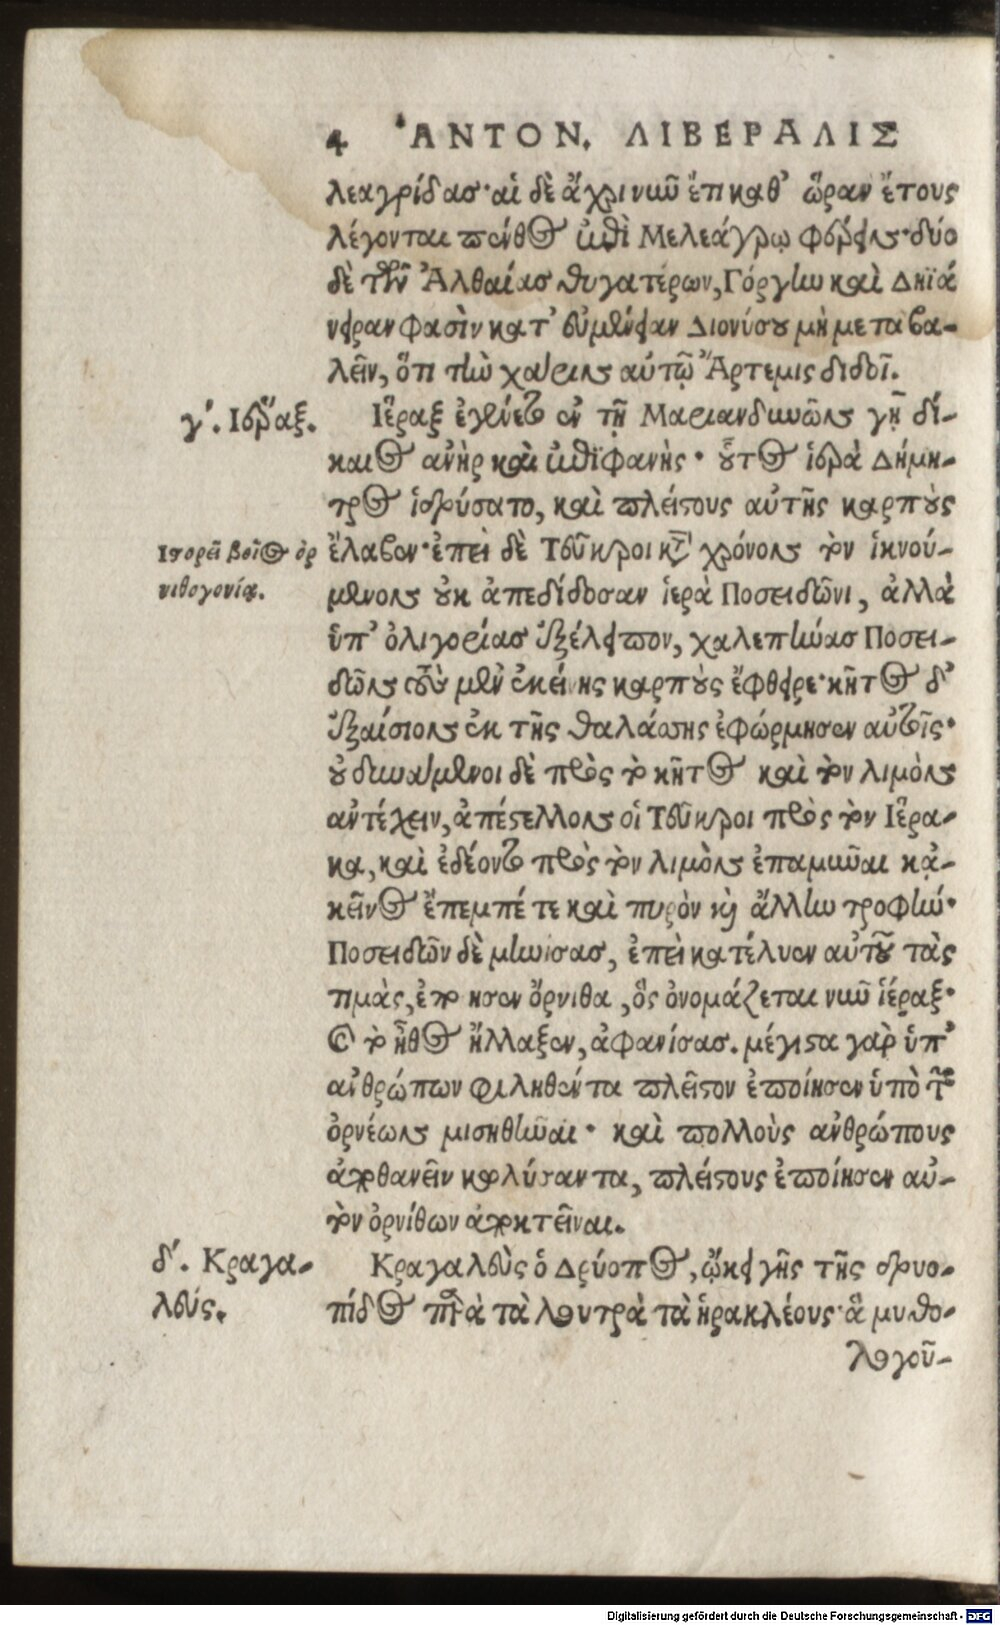 4 ἈΝΤΟΝ. ΛΙΒΕΡΑΛΙΣ
λεαγρίδας· αἱ δὲ ἄχρι νῦν ἔτι καθ' ὥραν ἔτους
λέγονται πένθος ἐπὶ Μελεάγρῳ φέρειν· δύο
δὲ τῶν Ἀλθαίας θυγατέρων, Γόργην καὶ Δηϊά
νειραν φασὶν κατ' εὐμένειαν Διονύσου μὴ μεταβα-
λεῖν, ὅτι τὴν χάριν αὐτῷ Ἄρτεμις διδοῖ.
γ΄. Ἱέραξ.
Ἱέραξ ἐγένετο ἐν τῇ Μαριανδυνῶν γῇ δί-
καιος ἀνὴρ καὶ ἐπιφανής· οὗτος ἱερὰ Δήμη-
τρος ἱδρύσατο, καὶ πλείστους αὐτῆς καρποὺς
Ἱστορεῖ βοῖος ὀρ
νιθογονίᾳ.
ἔλαβεν· ἐπεὶ δὲ Τεῦκροι κατὰ χρόνον τὸν ἱκνού-
μενον οὐκ ἀπεδίδοσαν ἱερὰ Ποσειδῶνι, ἀλλὰ
ὑπ' ὀλιγορίας ἐξέλειπον, χαλεπήνας Ποσει-
δῶν τοὺς μὲν ἐκείνης καρποὺς ἔφθειρε· κῆτος δ'
ἐξαίσιον ἐκ τῆς θαλάσσης ἐφώρμησεν αὐτοῖς·
οὐ δυνάμενοι δὲ πρὸς τὸ κῆτος καὶ τὸν λιμὸν
ἀντέχειν, ἀπέστελλον οἱ Τεῦκροι πρὸς τὸν Ἱέρα-
κα, καὶ ἐδέοντο πρὸς τὸν λιμὸν ἐπαμῦναι κἀ-
κεῖνος ἔπεμπέ τε καὶ πυρὸν καὶ ἄλλην τροφήν·
Ποσειδῶν δὲ μηνίσας, ἐπεὶ κατέλυεν αὐτοῦ τὰς
τιμὰς, ἐποίησεν ὄρνιθα, ὃς ὀνομάζεται νῦν ἱέραξ·
καὶ τὸ ἦθος ἤλλαξεν, ἀφανίσας. μέγιστα γὰρ ὑπ'
ἀνθρώπων φιληθέντα πλεῖστον ἐποίησεν ὑπὸ τῶν
ὀρνέων μισηθῆναι· καὶ πολλοὺς ἀνθρώπους
ἀποθανεῖν κωλύσαντα, πλείστους ἐποίησεν αὐ-
τὸν ὀρνίθων ἀποκτεῖναι.
δ΄. Κραγα-
λεύς.
Κραγαλεὺς ὁ Δρύοπος, ᾤκει γῆς τῆς δρυο-
πίδος παρὰ τὰ λουτρὰ τὰ ἡρακλέους· ἃ μυθο-
λογοῦ-
Digitalisierung gefördert durch die Deutsche Forschungsgemeinschaft - DFG